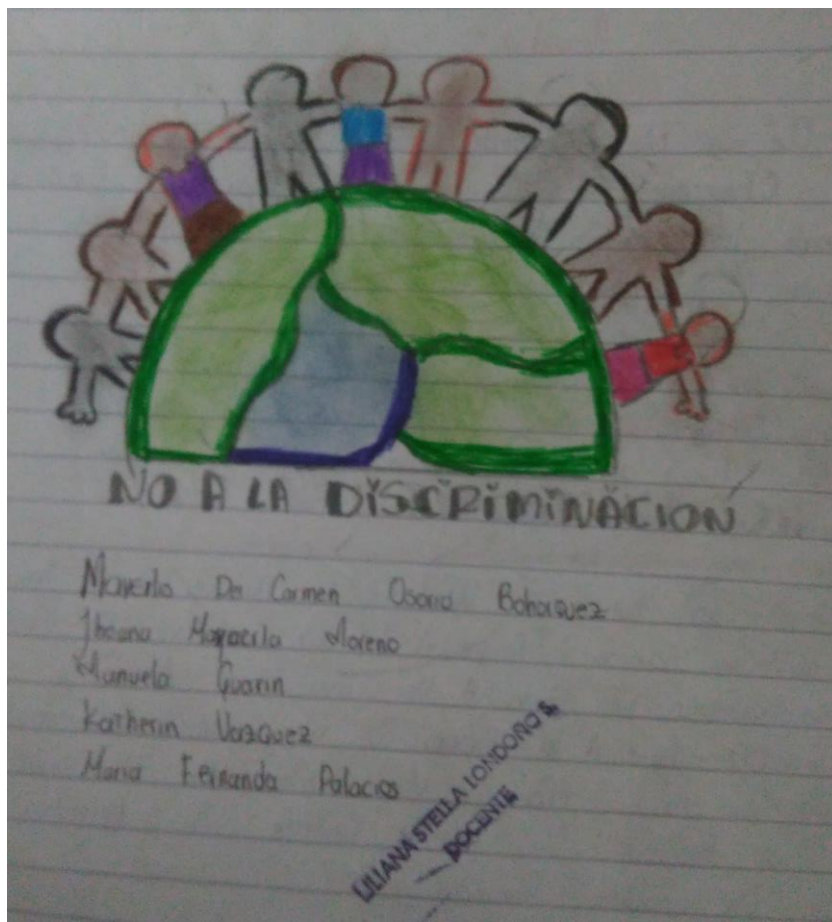 NO A LA DISCRIMINACION
Del Carmen Osorio Bohorquez
Moreno
Manuela Guarin
Katherin Vazquez
Maria Fernanda Palacios
LILIANA STELLA LONDOÑO S.
DOCENTE